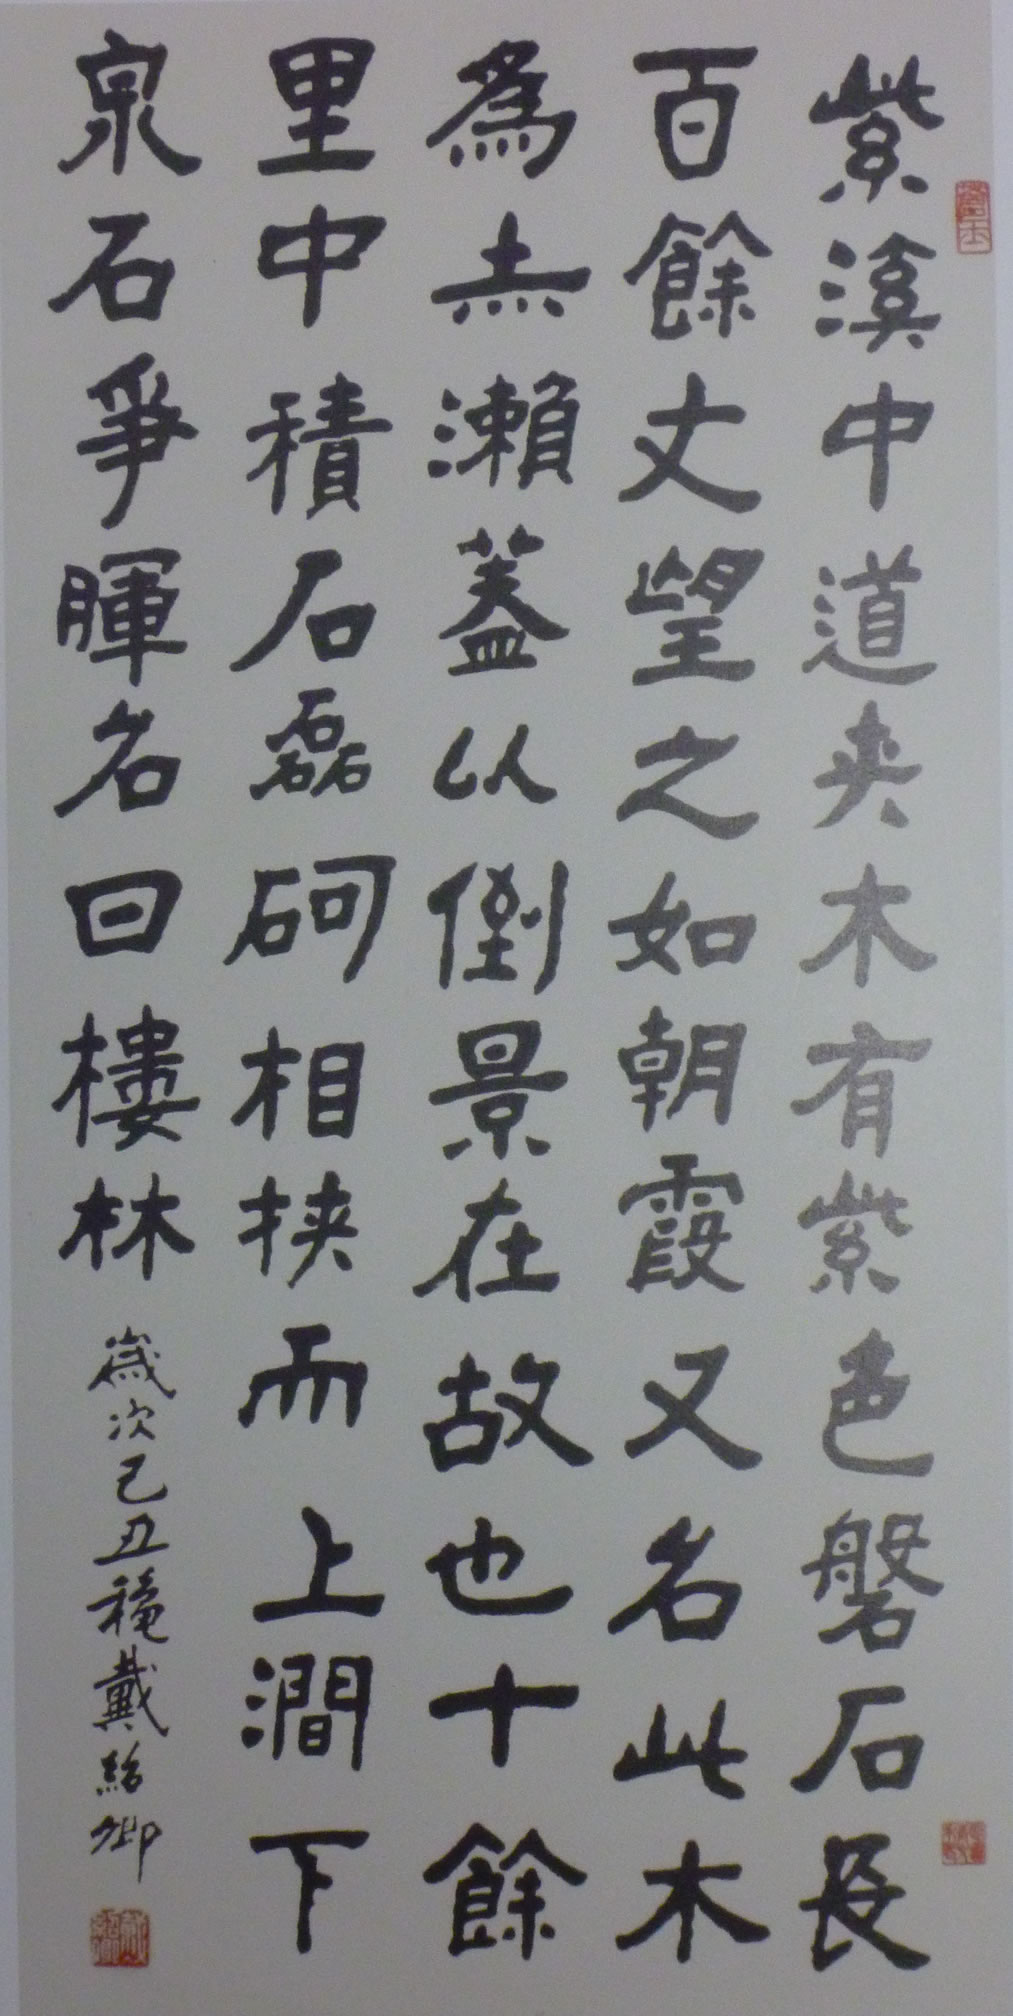 紫溪中道夾木有紫色磐石長
百餘丈望之如朝霞又名此木
為赤瀨蓋以倒景在故也十餘
里中積石磊砢相挾而上澗下
泉石爭暉名曰樓林
歲次己丑穐戴紹卿